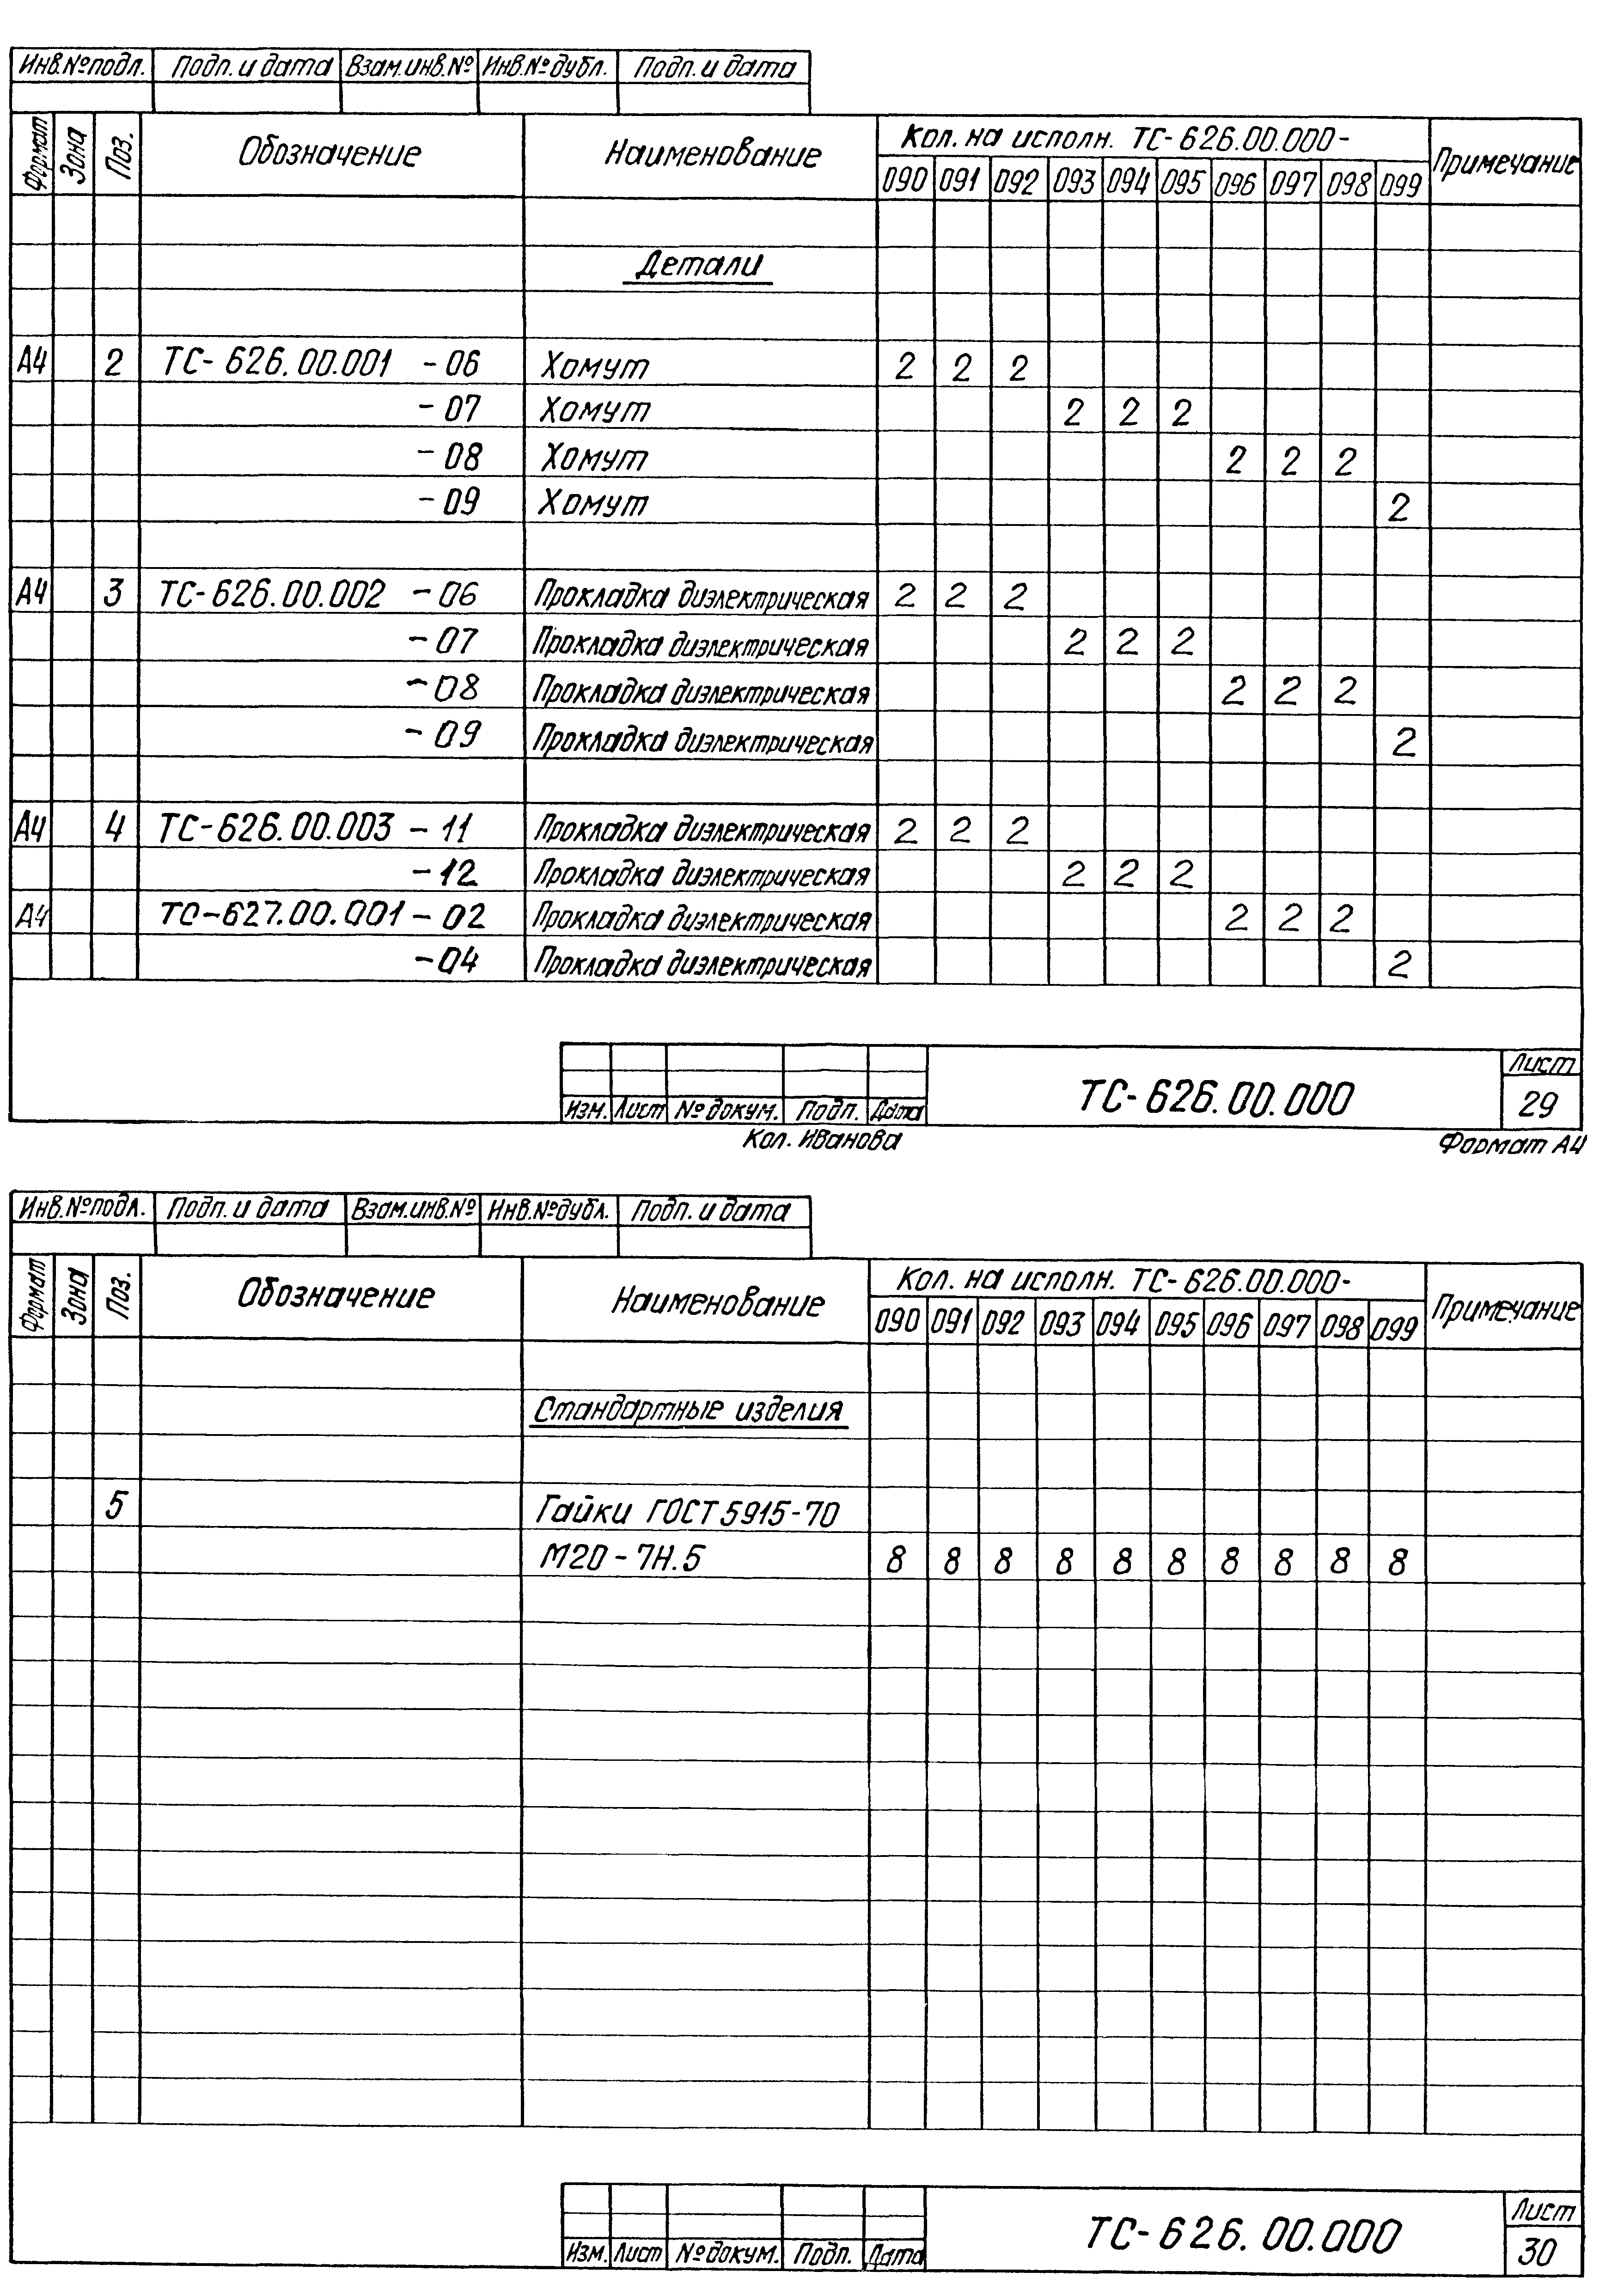 Инв.№подл. Подп. и дата Взам.инв.№ Инв.№дубл. Подп. и дата
Формат Зона Поз. Обозначение Наименование Кол. на исполн. ТС-626.00.000- Примечание
090 091 092 093 094 095 096 097 098 099
Детали
А4 2 ТС-626.00.001 -06 Хомут 2 2 2
-07 Хомут 2 2 2
-08 Хомут 2 2 2
-09 Хомут 2
А4 3 ТС-626.00.002 -06 Прокладка диэлектрическая 2 2 2
-07 Прокладка диэлектрическая 2 2 2
-08 Прокладка диэлектрическая 2 2 2
-09 Прокладка диэлектрическая 2
А4 4 ТС-626.00.003 -11 Прокладка диэлектрическая 2 2 2
-12 Прокладка диэлектрическая 2 2 2
А4 ТС-627.00.001 -02 Прокладка диэлектрическая 2 2 2
-04 Прокладка диэлектрическая 2
Изм. Лист № докум. Подп. Дата ТС-626.00.000 Лист 29
Кол. Иванова Формат А4
Инв.№подл. Подп. и дата Взам.инв.№ Инв.№дубл. Подп. и дата
Формат Зона Поз. Обозначение Наименование Кол. на исполн. ТС-626.00.000- Примечание
090 091 092 093 094 095 096 097 098 099
Стандартные изделия
5 Гайки ГОСТ 5915-70
М20-7Н.5 8 8 8 8 8 8 8 8 8 8
Изм. Лист № докум. Подп. Дата ТС-626.00.000 Лист 30